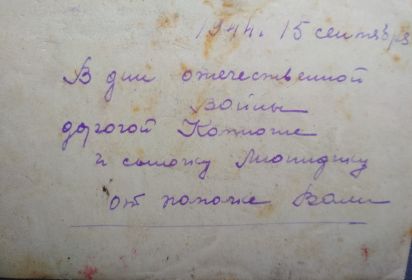 1944г. 15 сентября
В дни отечественной
войны
дорогой Катюше
и сыночку Лионидику
от папочке Вали